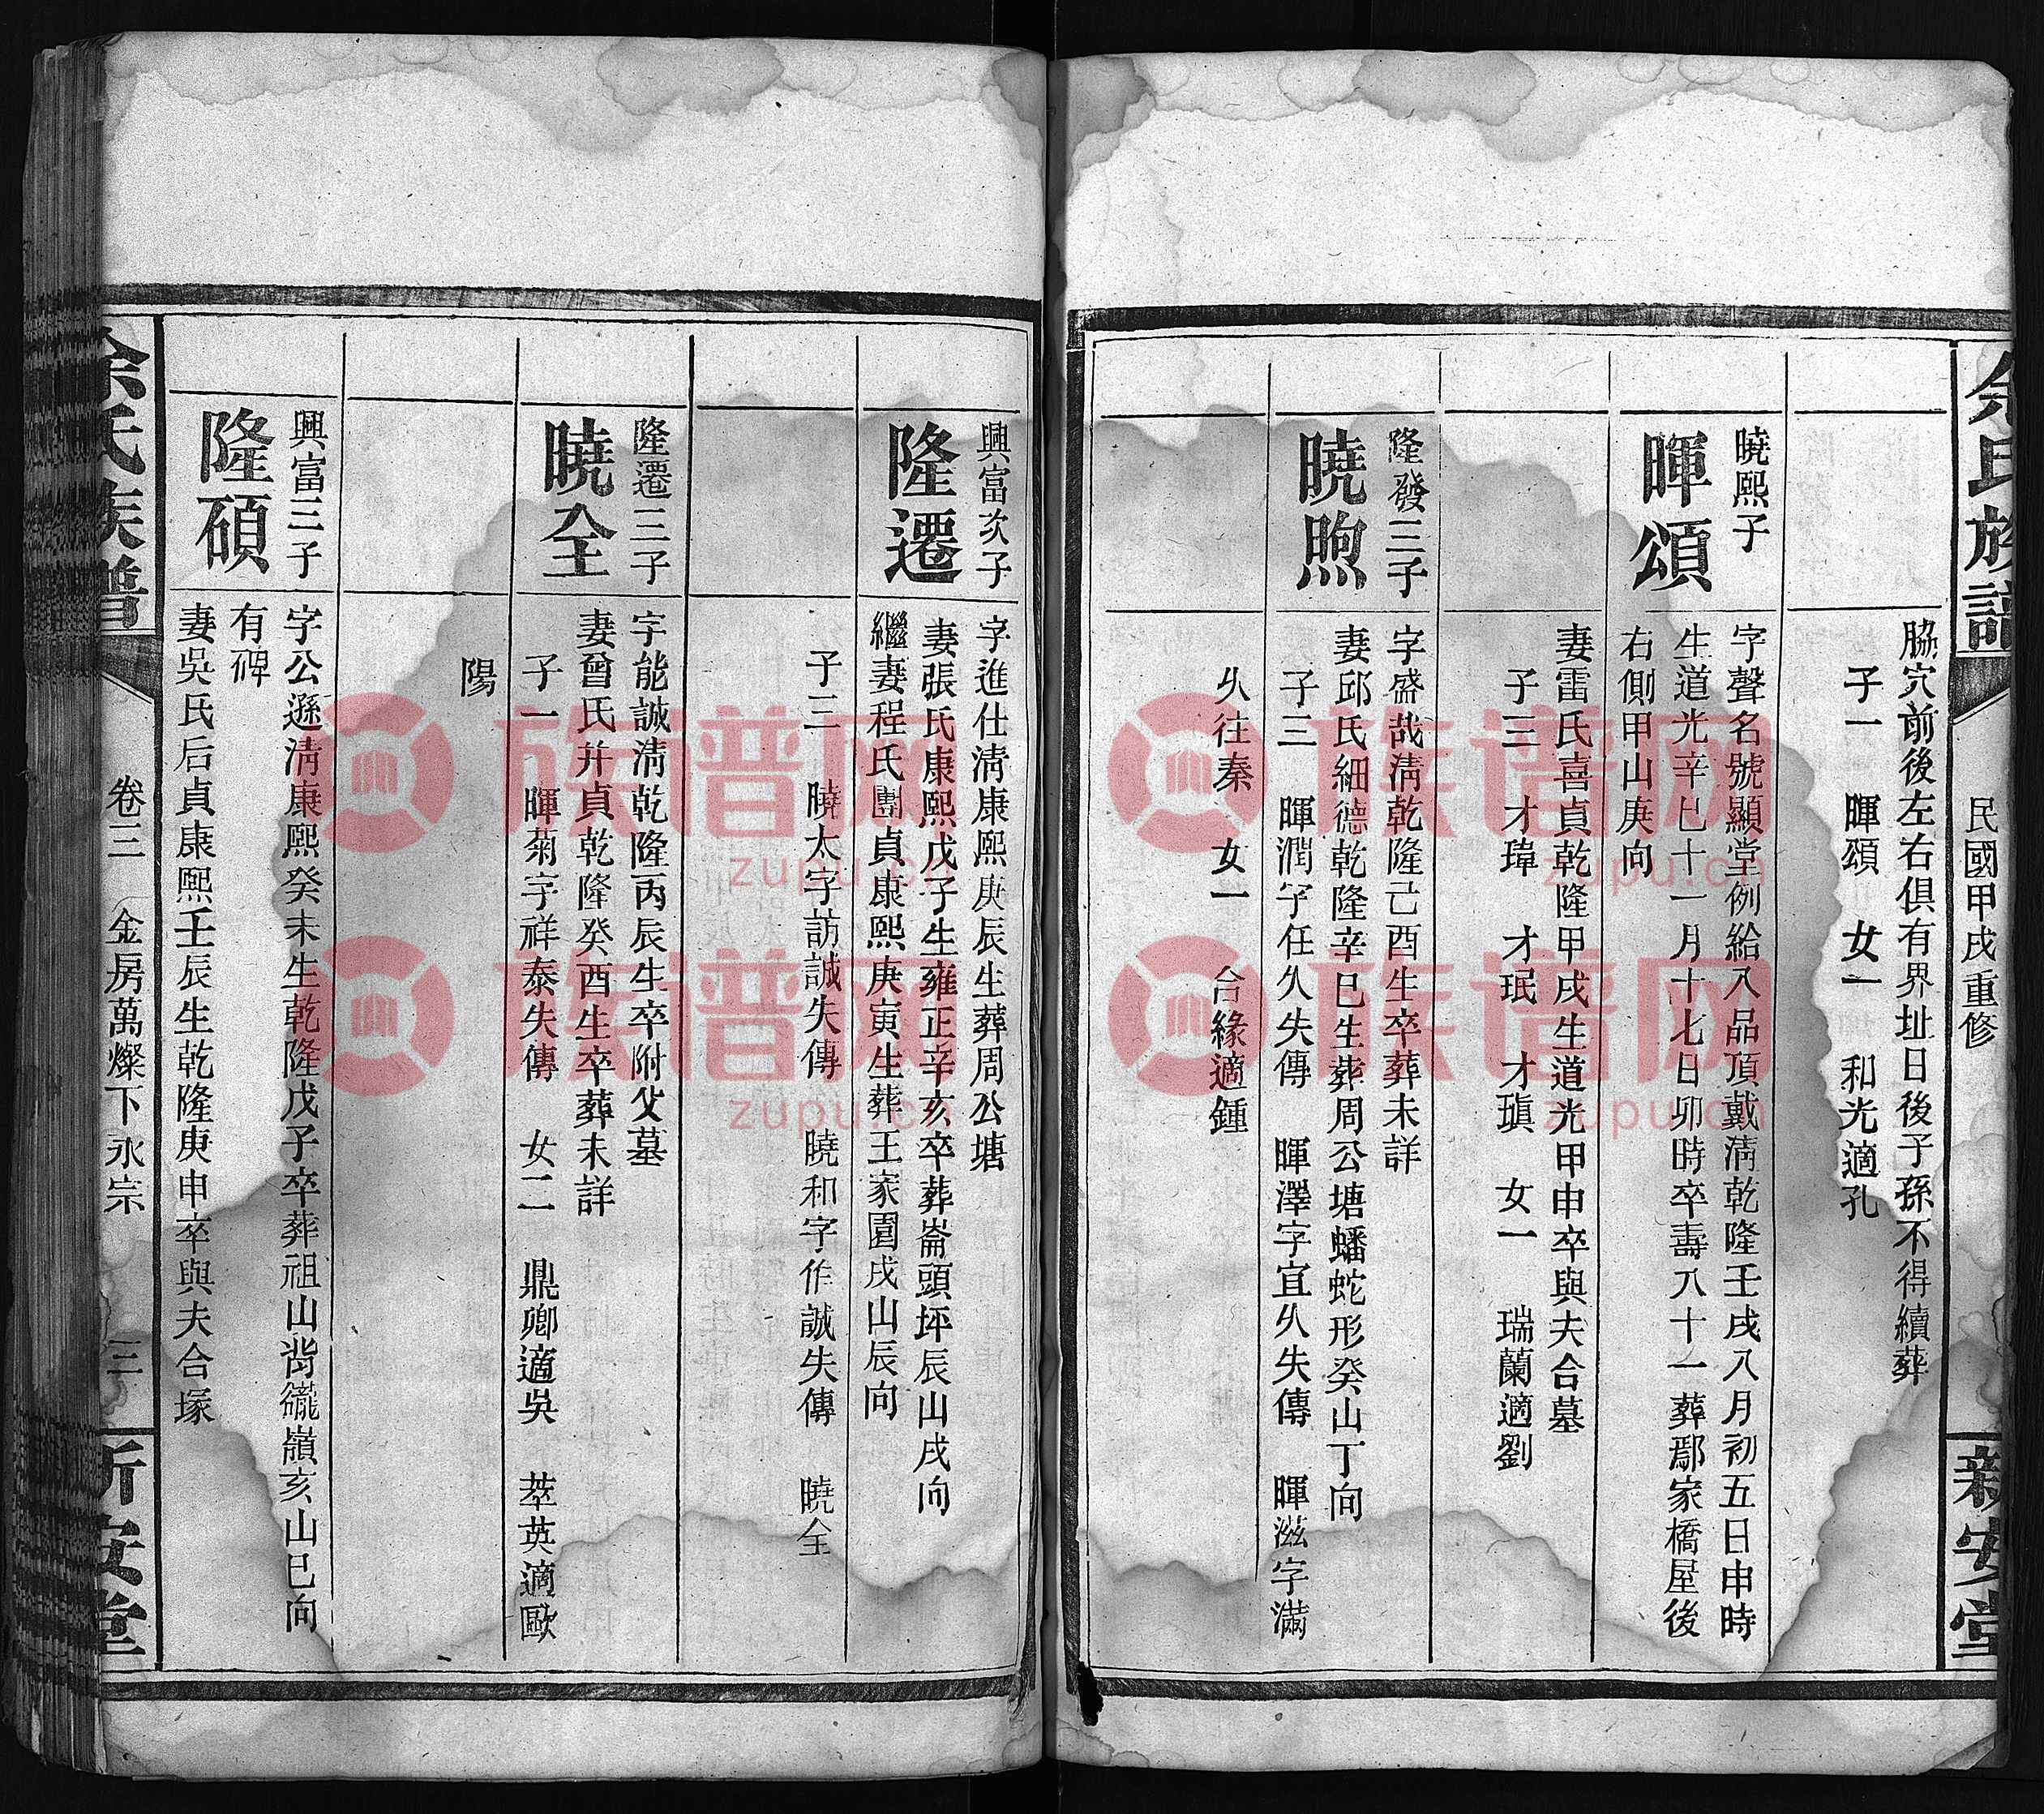 余氏族譜
民國甲戌重修
新安堂
脇穴前後左右俱有界址日後子孫不得續葬
子一 暉頌 女一 和光適孔
曉熙子
暉頌
字聲名號顯堂例給八品頂戴淸乾隆壬戌八月初五日申時
生道光辛巳十一月十七日卯時卒壽八十一葬鄢家橋屋後
右側甲山庚向
妻雷氏喜貞乾隆甲戌生道光甲申卒與夫合墓
子三 才瑋 才珉 才瑱 女一 瑞蘭適劉
隆發三子
曉煦
字盛哉淸乾隆己酉生卒葬未詳
妻邱氏細德乾隆辛巳生葬周公塘蟠蛇形癸山丁向
子三 暉潤字任久失傳 暉澤字宜久失傳 暉滋字滿
久往秦 女一 合緣適鍾
興富次子
隆遷
字進仕淸康熙庚辰生葬周公塘
妻張氏康熙戊子生雍正辛亥卒葬崙頭坪辰山戌向
繼妻程氏團貞康熙庚寅生葬王家園戌山辰向
子三 曉太字訪誠失傳 曉和字作誠失傳 曉全
隆遷三子
曉全
字能誠淸乾隆丙辰生卒附父墓
妻曾氏幷貞乾隆癸酉生卒葬未詳
子一 暉菊字祥泰失傳 女二 鼎卿適吳 萃英適歐
陽
興富三子
隆碩
字公遜淸康熙癸未生乾隆戊子卒葬祖山背嶺亥山巳向
有碑
妻吳氏后貞康熙壬辰生乾隆庚申卒與夫合塚
余氏族譜
卷三 金房萬燦下永宗
三
新安堂
族谱网
zupu.cn
族谱网
zupu.cn
族谱网
zupu.cn
族谱网
zupu.cn